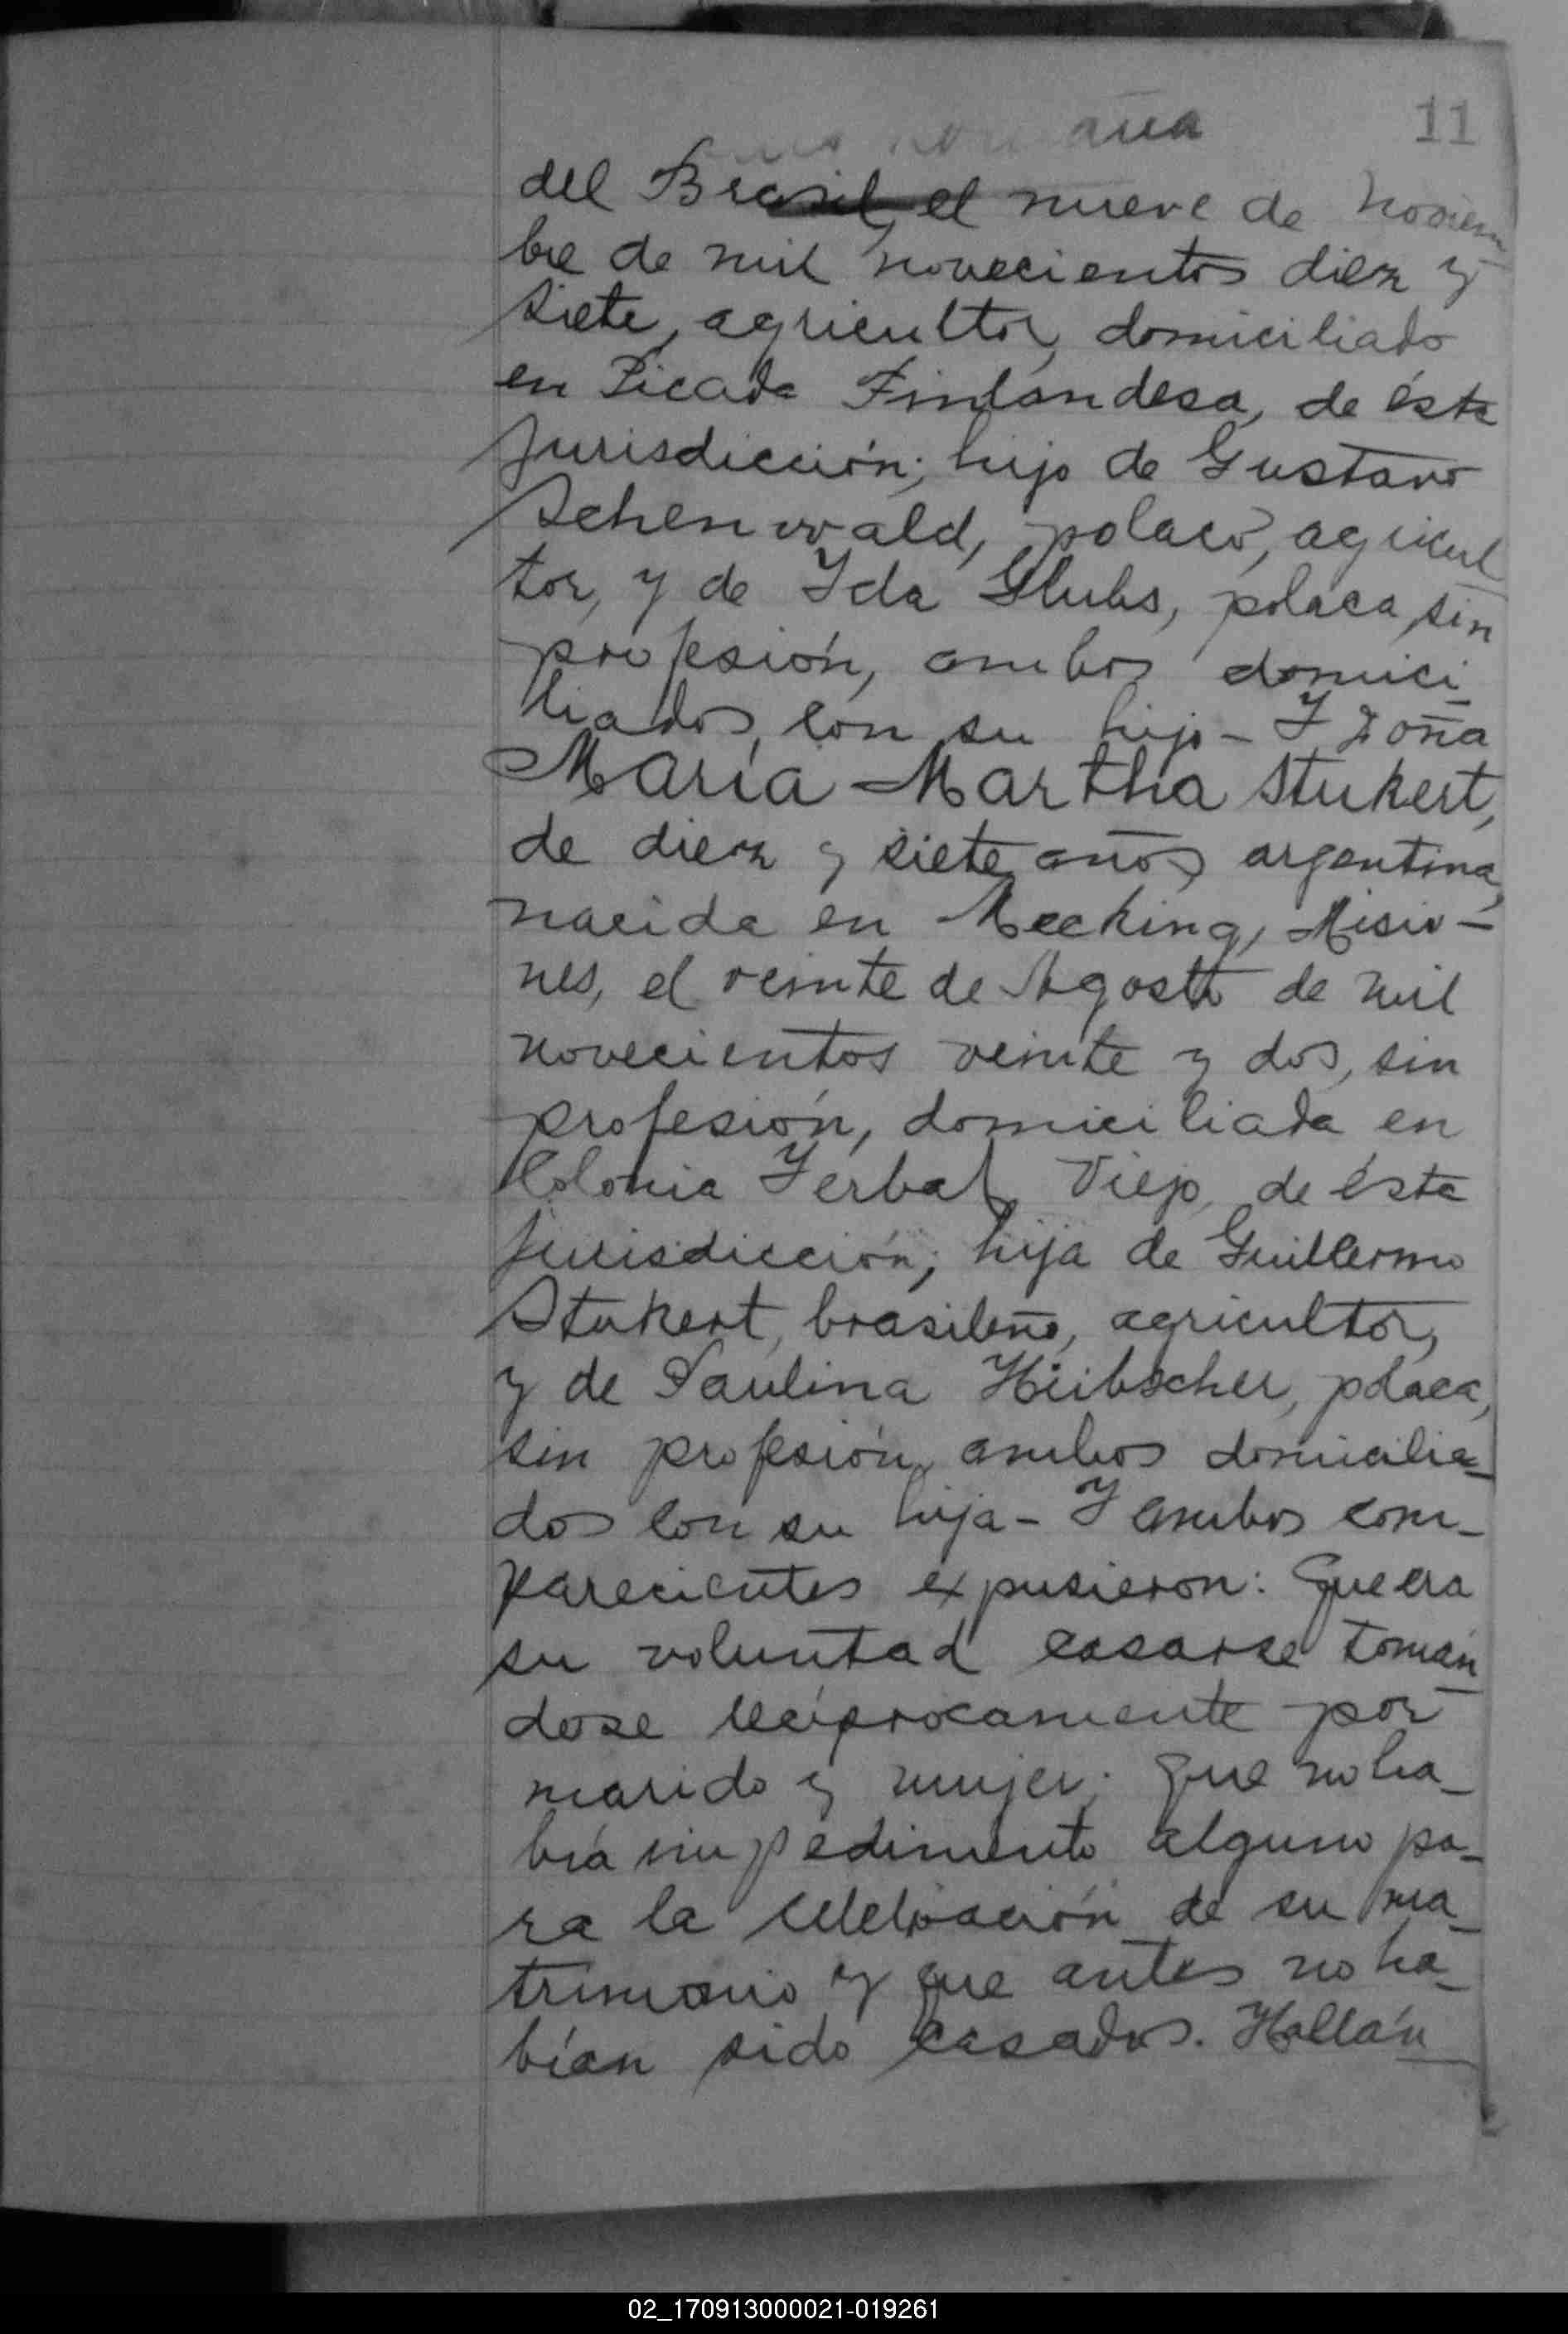 11
del Brasil, el nueve de Noviem
bre de mil novecientos diez y
siete, agricultor, domiciliado
en Picada Finlandesa, de ésta
jurisdicción; hijo de Gustavo
Schenwald, polaco, agricul
tor, y de Ida Glubs, polaca, sin
profesión, ambos domici_
liados, con su hijo - Y Doña
María Martha Stukert,
de diez y siete años, argentina,
nacida en Mecking, Misio-
nes, el veinte de Agosto de mil
novecientos veinte y dos, sin
profesión, domiciliada en
Colonia Yerbal Viejo, de ésta
jurisdicción; hija de Guillermo
Stukert, brasileño, agricultor,
y de Paulina Hübscher, polaca,
sin profesión, ambos domicilia_
dos con su hija - Y ambos com_
parecientes expusieron: Que era
su voluntad casarse tomán
dose recíprocamente por
marido y mujer; que no ha_
bía impedimento alguno pa_
ra la celebración de su ma_
trimonio y que antes no ha_
bían sido casados. Hallán_
02_170913000021-019261